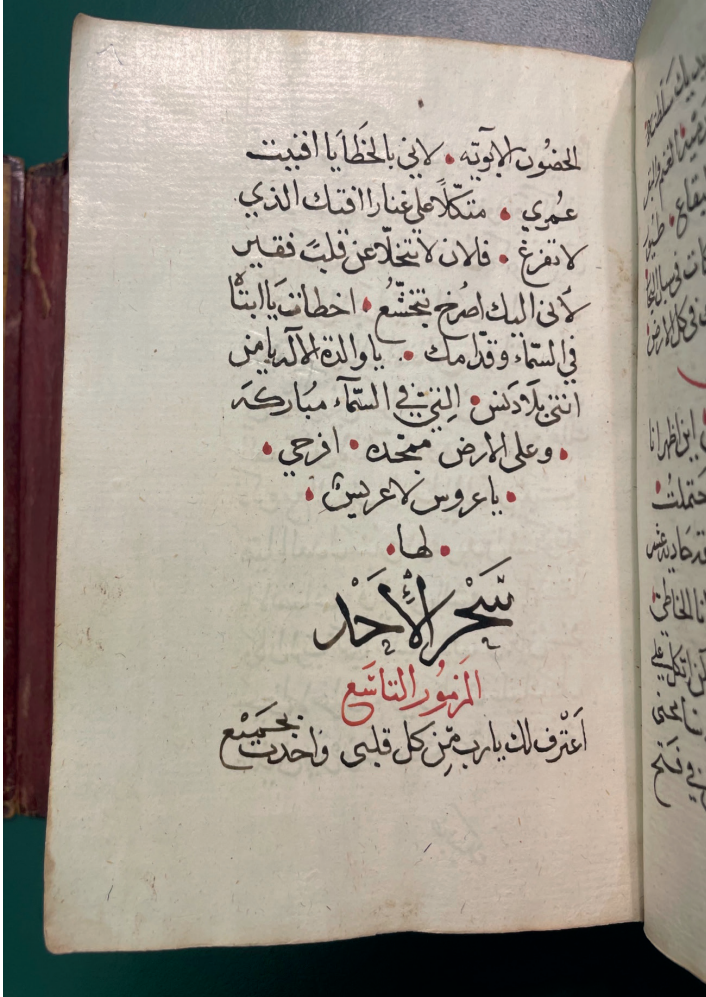 الحضون الابويه • لاني بالخطَايا افنيت
عُمري • متكّلًا على غنارافتك الذي
لا تفرغ • فالان لا تتخلّا عن قلبٍ فقير
لأنى اليك اصرخ بتخشّع • اخطات يَا ابتاْ
في السمَاء وقدّامك • يا والدة الالَه يامن
انتى بلَا دَنس • التي في السمّآء مبُاركه
• وعلى الارض ممجّده • افرحي •
• يا عروس لا عريسَ •
• لها •
سَحَرْ الأَحَدْ
المَزمُور التاسَع
اَعَتْرف لك يارب مِّن كل قلبى واحَدث بجَميْع